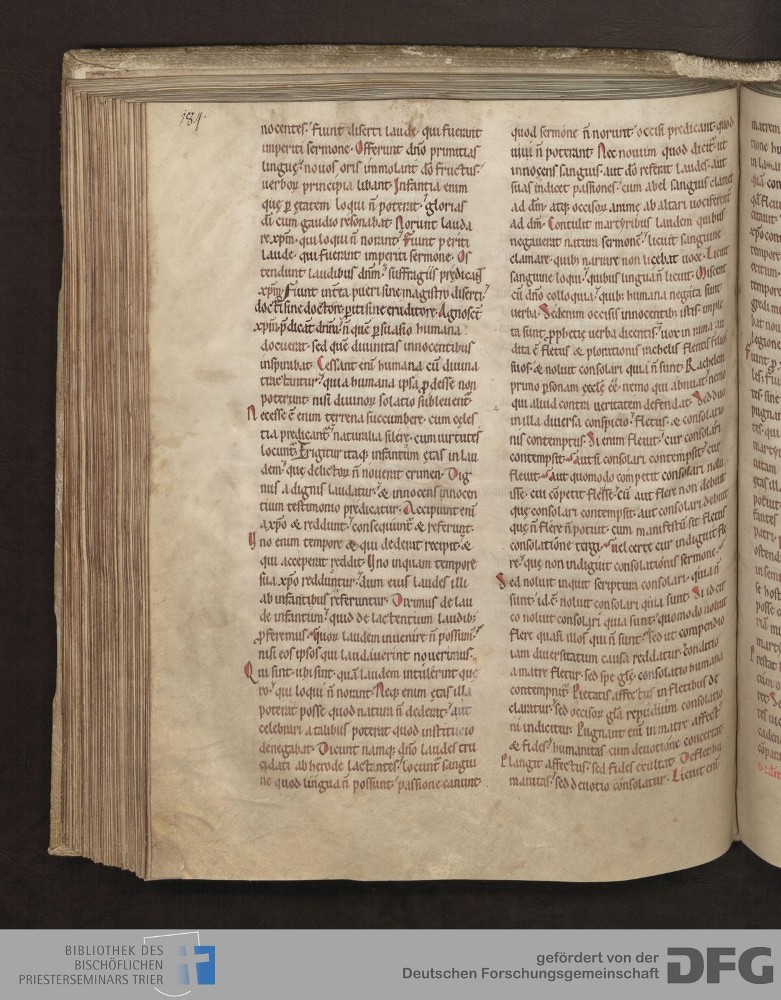 184
nocentes. Fiunt diserti laude. qui fuerant
imperiti sermone. Offerunt dño primitias
linguę. nouos oris immolant dō fructus.
uerboꝝ principia libant. Infantia enim
quę ꝑ ętatem loqui ñ poterat. glorias
dī cum gaudio resonabat. Norunt lauda
re xp̄m. qui loqui ñ norant. Fiunt periti
laude. qui fuerant imperiti sermone. Os
tendunt laudibus dnm̄. suffragiis prędicañt
xp̄m. Fiunt pueri sine magistro diserti.
docti sine doctore. ꝑiti sine eruditore. Agnoscet
xp̄m. p̄dicant dnm̄. ñ quę ꝑsuasio humana
docuerat. sed quę diuinitas innocentibus
inspirabat. Cessant eni humana cū diuina
tractantur. quia humana ipsa ꝓdesse non
poterunt nisi diuinoꝝ solatio subleuent̄.
Necesse ē enim terrena succumbere. cum cęles
tia predicant̄. naturalia silere. cum uirtutes
locunt̄. Erigitur itaq; infantium ętas in lau
dem. quę delictoꝝ ñ nouerat crimen. Dig
nus a dignis laudatur. & innocens innocen
tium testimonio predicatur. Accipiunt eni
a xp̄o & reddunt. consequunt̄ & referunt.
Uno enim tempore & qui dederat recipit. &
qui acceperat reddit. Uno inquam tempore
sua xp̄o redduntur. dum eius laudes illi
ab infantibus referuntur. Diximus de lau
de infantium. quid de lactentium laudib;
ꝓferemus. quoꝝ laudem inuenire ñ possum'.
nisi eos ipsos qui laudauerint nouerimus.
Qui sint. ubi sint. quā laudem intulerint quę
ro. qui loqui ñ norant. Neq; enim ętas illa
poterat posse quod natura ñ dederat. aut
celebrari a talibus poterat quod institutio
denegabat. Dicunt namq; dño laudes tru
cidati ab herode lactentes. locunt̄ sangui
ne quod lingua ñ possunt. passione canunt
quod sermone ñ norunt. occisi predicant. quod
uiui ñ poterant. Nec nouum quod dicit̄. ut
innocens sanguis. aut dō referat laudes. aut
suas indicet passiones. cum abel sanguis clamet
ad dm̄. atq; occisoꝝ animę ab altari uociferent̄
ad dm̄. Contulit martyribus laudem quibus
negauerat natura sermonē. licuit sanguine
clamare. quib; narrare non licebat uoce. Licuit
sanguine loqui. quibus lingua ñ licuit. Miscent
cū dño colloquia. quib; humana negata sunt
uerba. Sed enim occisis innocentib; istis imple
ta sunt ꝓphetię uerba dicentis. uox in rama au
dita ē fletus & plorationis rachelis flentis filios
suos. & noluit consolari quia ñ sunt. Rachelem
primo ꝑsonam ęcclę eē. nemo qui abnuat. nemo
qui aliud contra ueritatem defendat. Sed duo
in illa diuersa conspicio. fletus. & consolatio
nis contemptus. Si enim fleuit. cur consolari
contempsit. aut si consolari contempsit. cur
fleuit. aut quomodo competit consolari nolu
isse. cui cōpetit flesse. cū aut flere non debuit
quę consolari contempsit. aut consolari debuit
quę ñ flere ñ potuit. cum manifestū sit fletus
consolatione tergi. uel certe cur indiguit fle
re. quę non indiguit consolationis sermone.
Sed noluit inquit scriptura consolari. quia ñ
sunt. id ē. noluit consolari quia sunt. Si id cir
co noluit consolari quia sunt. quomodo noluit
flere quasi illos qui ñ sunt. sed ut compendio
iam diuersitatum causa reddatur. conditio
a matre fletur. sed spe glę. consolatio humana
contempnit̄. Pietatis affectus in fletibus de
claratur. sed occisoꝝ glā repudium consolatio
ni indicitur. Pugnant eni in matre affect'
& fides. humanitas cum deuotione concertat.
Plangit affectus. sed fides exultat. Deflet hu
manitas. sed deuotio consolatur. Licuit eni
BIBLIOTHEK DES
BISCHÖFLICHEN
PRIESTERSEMINARS TRIER
gefördert von der
Deutschen Forschungsgemeinschaft
DFG